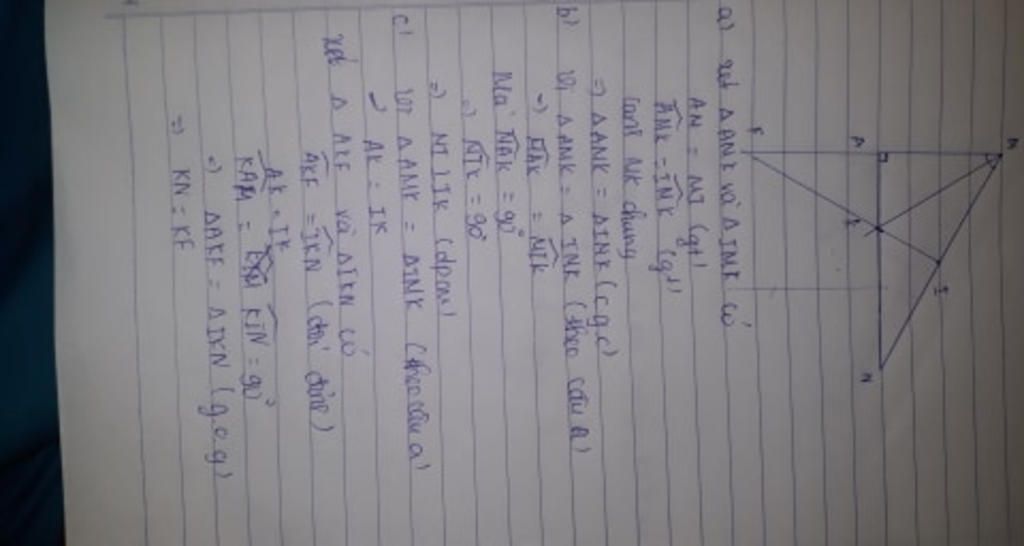 M
A
I
K
F
N
a) xét Δ ANK và Δ INK có
AN = NI (gt)
ANK = INK (gt)
cạnh NK chung
=> Δ ANK = Δ INK (c.g.c)
b) Vì Δ ANK = Δ INK (theo câu a)
=> NAK = NIK
Mà NAK = 90°
=> NIK = 90°
=> NI ⊥ IK (đpcm)
c) Vì Δ ANK = Δ INK (theo câu a)
=> AK = IK
xét Δ AKF và Δ IKN có
AKF = IKN (đối đỉnh)
AK = IK
KIN = 90°
=> Δ AKF = Δ IKN (g.c.g)
=> KN = KF